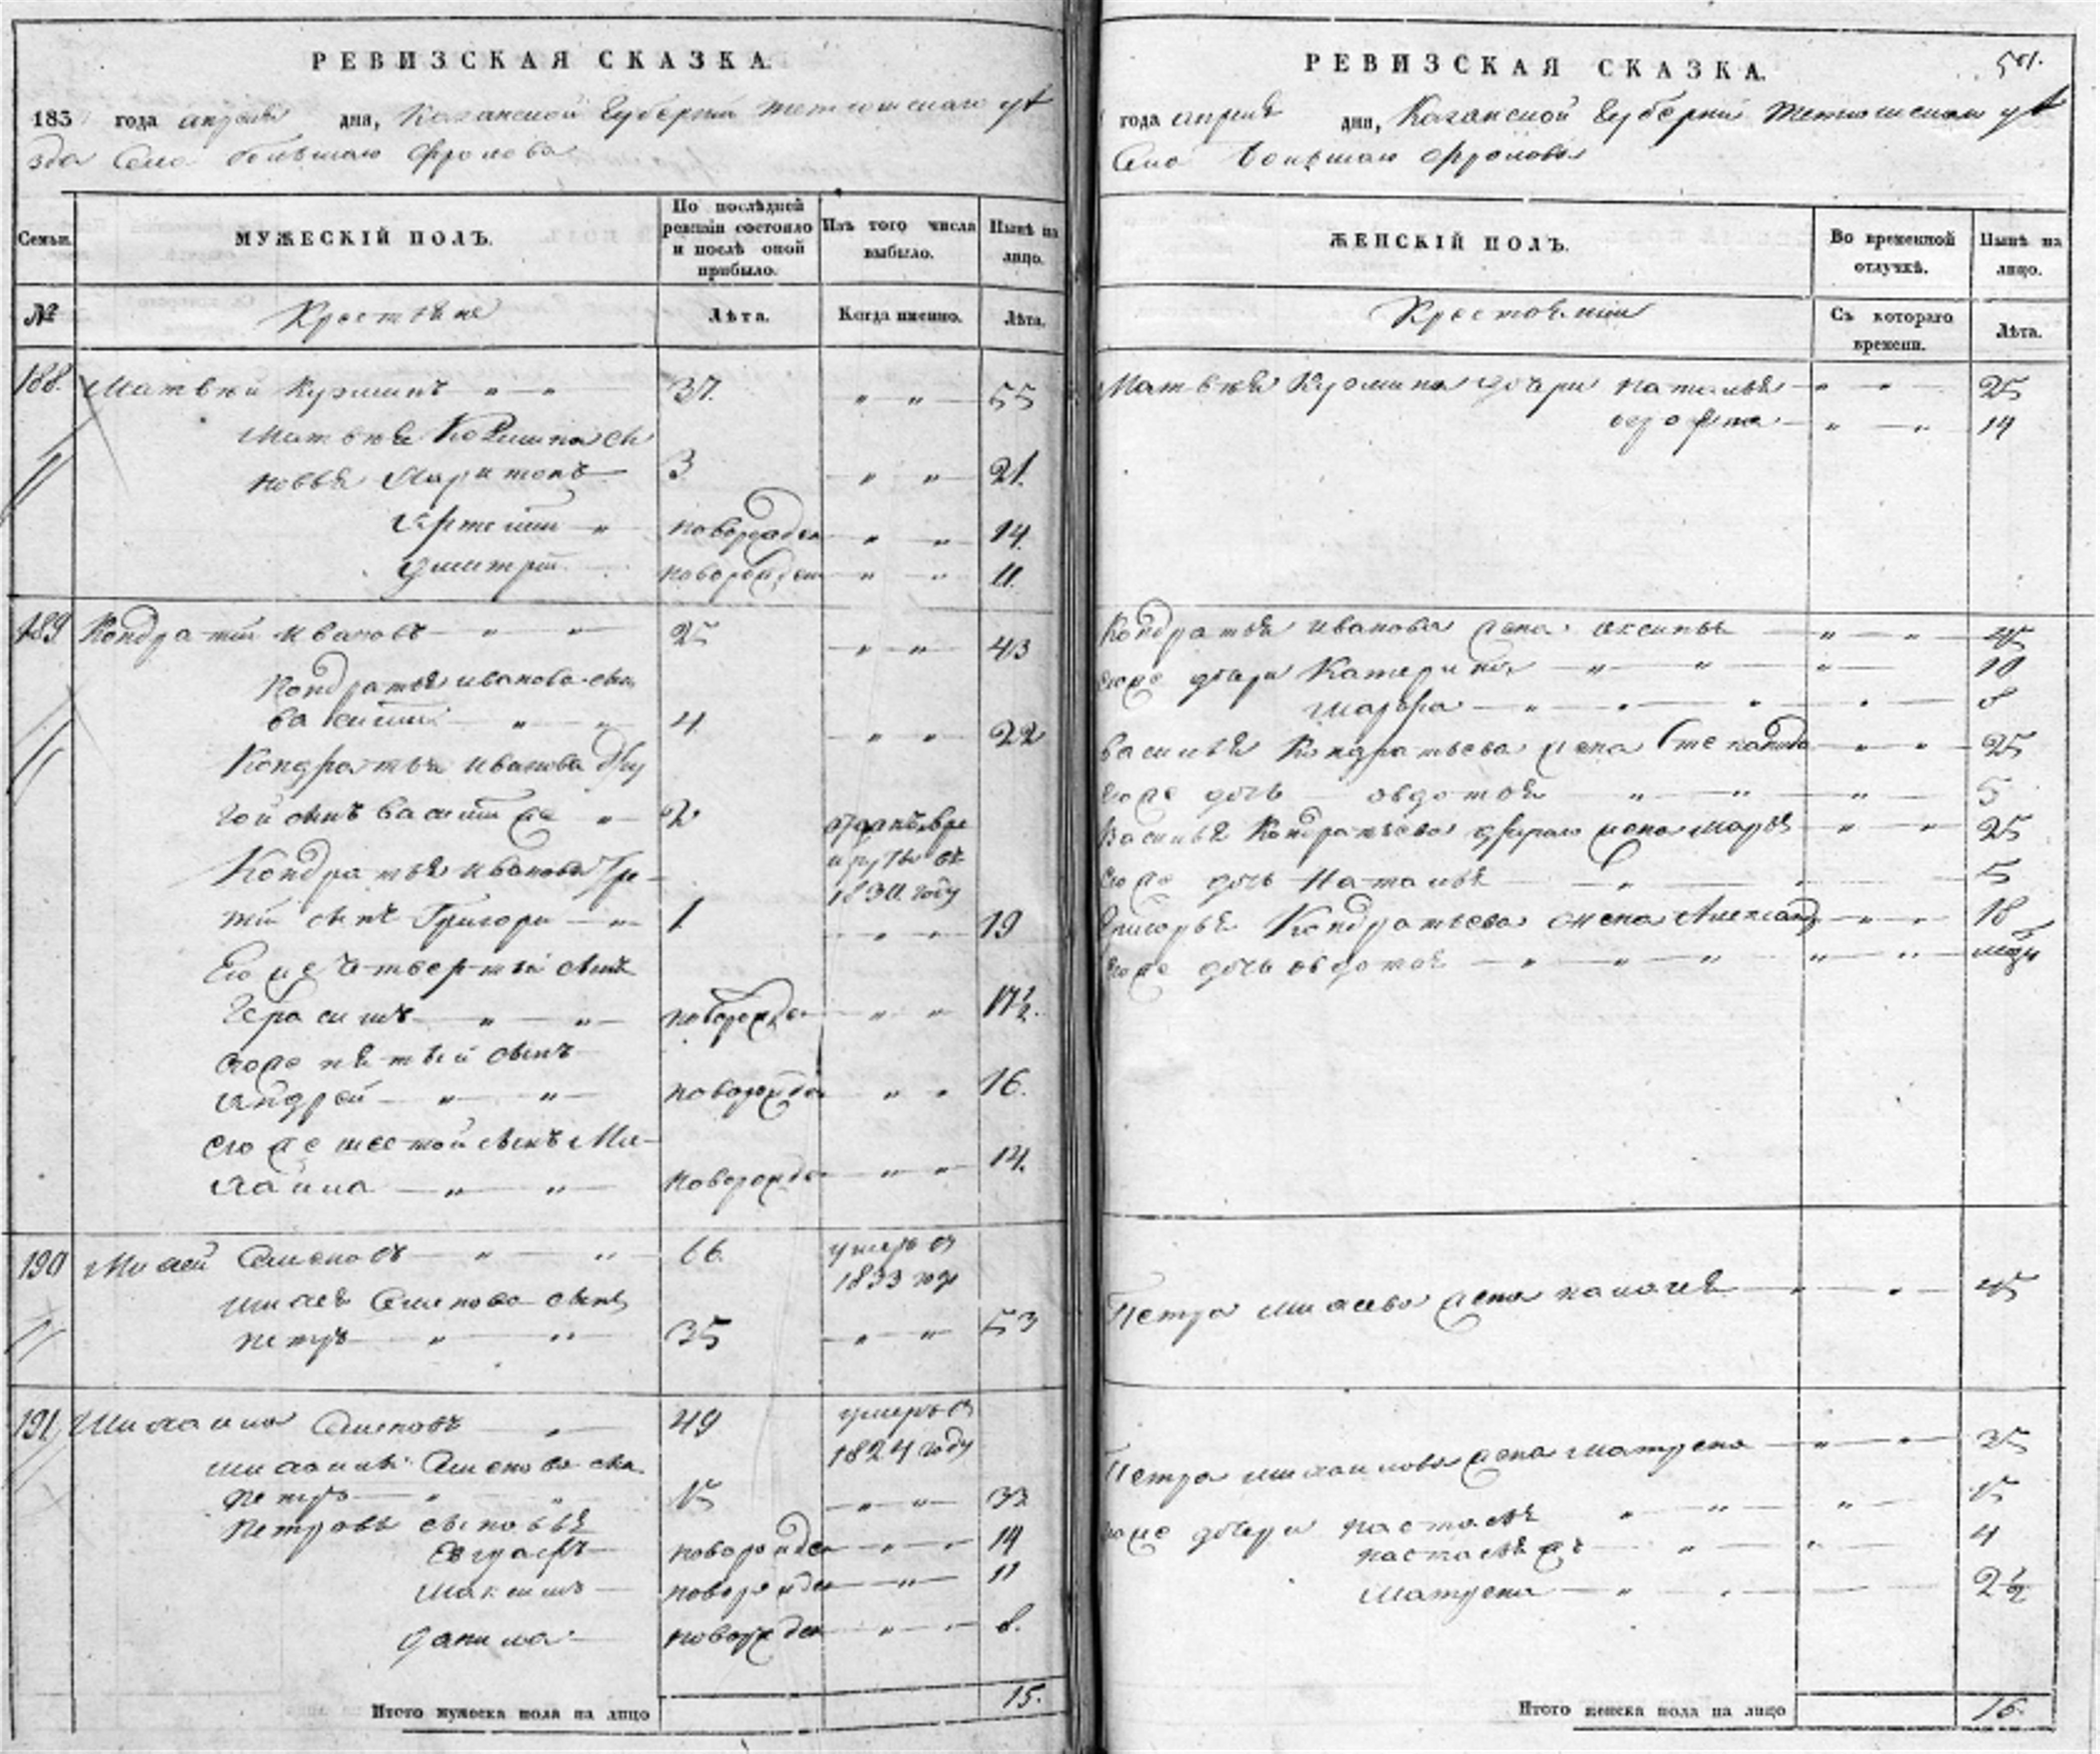 РЕВИЗСКАЯ СКАЗКА.
183 года апреля дня, Казанской Губернии Тетюшскаго уѣ
зда Село большаго Фролова
Семьи.
МУЖЕСКІЙ ПОЛЪ.
По послѣдней ревизіи состояло и послѣ оной прибыло.
Изъ того числа выбыло.
Нынѣ на лицо.
№
Крестьяне
Лѣта.
Когда именно.
Лѣта.
188. Матвей Кузминъ " — " 37. " " 55
Матвея Козмина сы
новья Харитонъ 3 " " 21.
Артемий " новорожден " " 14.
Дмитрий новорожден " " 11.
189 Кондратий Ивановъ " " 25 " " 43
Кондратья Иванова сынъ
Василий " " 4 " " 22
Кондратья Иванова дру
гой сынъ Василий же " 2
1830 году
Кондратья Иванова тре
тий сынъ Григори " 1 " " 19
Его же четвертый сынъ
Герасимъ " " новорожден " " 17½.
Его же пятый сынъ
Андрей " " новорожден " " 16.
Его же шестой сынъ Ми
хайла " " новорожден " " 14.
190 Михей Семеновъ " " 66. умеръ въ
1833 году
Михея Семенова сынъ
Петръ " " 35 " " 53
191. Михаила Семеновъ " 49 умеръ въ
1824 году
Михаила Семенова сынъ
Петръ " " 15 " " 33
Петровы сыновья
Евграфъ новорожден " " 14
Максимъ новорожден " 11
Данила новорожден " " 8.
Итого мужеска пола на лицо 15.
РЕВИЗСКАЯ СКАЗКА. 501.
года апреля дня, Казанской Губернии Тетюшскаго уѣ
Село большаго Фролова
ЖЕНСКІЙ ПОЛЪ.
Во временной отлучкѣ.
Нынѣ на лицо.
Крестьянки
Съ котораго времени.
Лѣта.
Матвея Кузмина дочери Наталья " " 25
" " 14
Кондратья Иванова жена Аксинья " " 45
Его же дочери Катерина " " " 10
Марфа " " " " 8
Василья Кондратьева жена Степанида " " 25
Его же дочь Овдотья " " " 5
Василья Кондратьева другаго жена Марья " " 25
Его же дочь Наталья " 5
Григорья Кондратьева жена Александ " " 18
Его же дочь Овдотья " " " " "
Петра Михеева жена Палагея " " 45
Петра Михайлова жена Матрена " " 35
Его же дочери Настасья " " " 15
Настасья же " " 4
Матрена " " 2½
Итого женска пола на лицо 16.